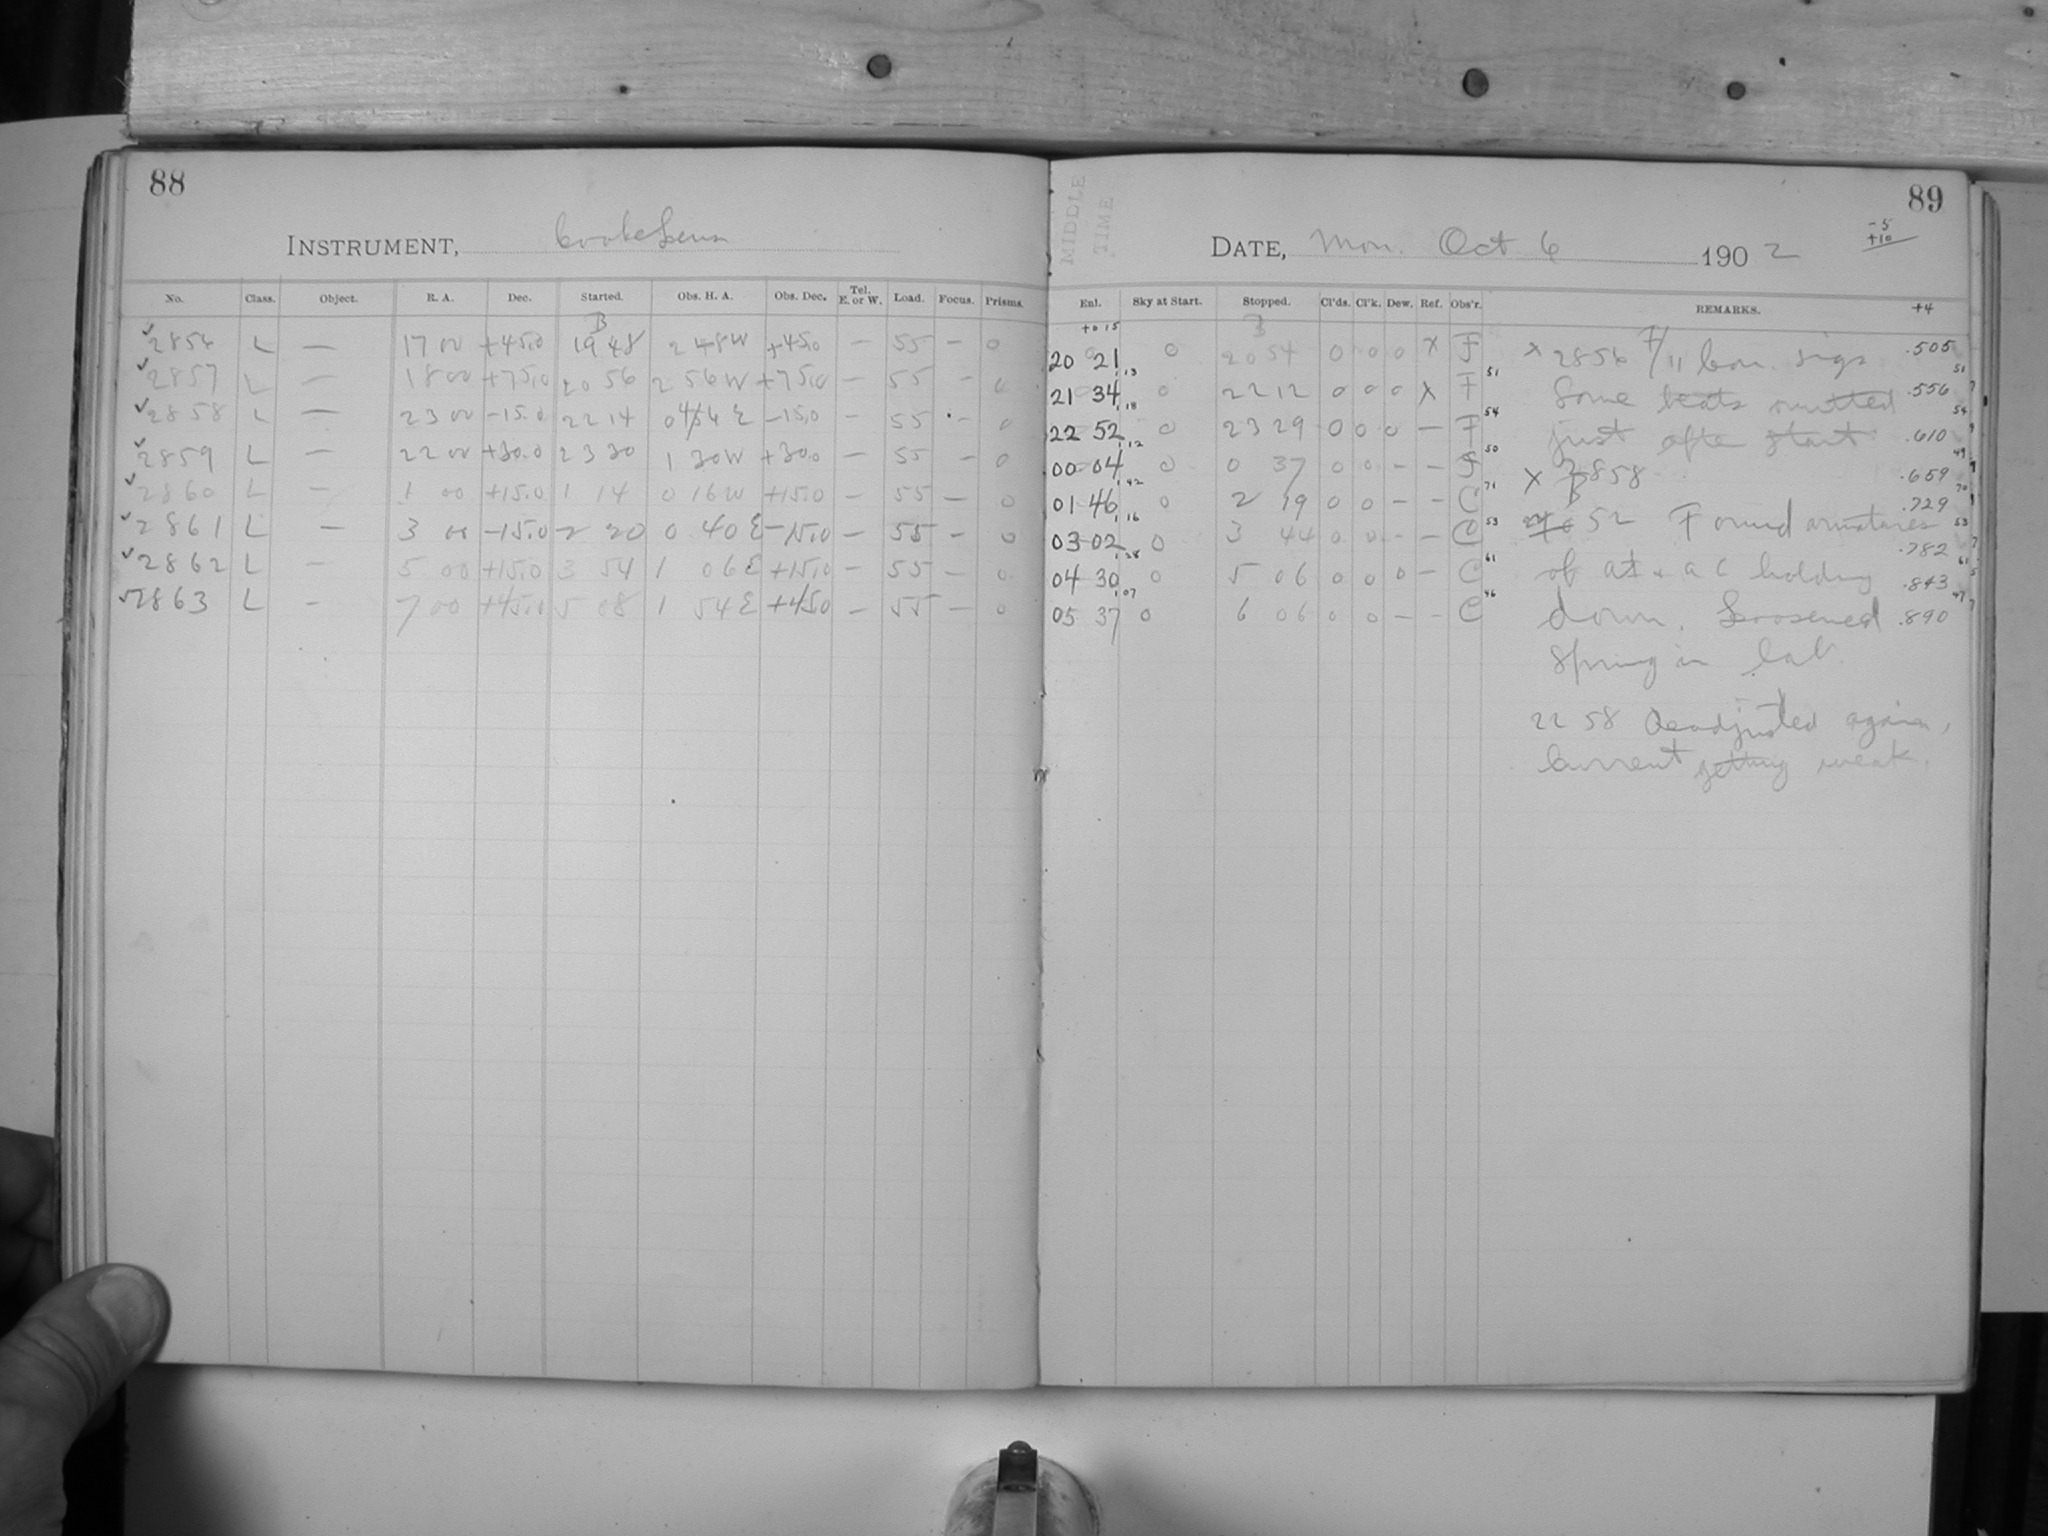 88
INSTRUMENT, Cooke Lens
No. Class. Object. R. A. Dec. Started. Obs. H. A. Obs. Dec. Tel. E. or W. Load. Focus. Prisms.
B
✓2856 L — 17 00 +45.0 19 48 2 48W +45.0 — 55 — 0
✓2857 L — 18 00 +75.0 20 56 2 56W +75.0 — 55 — 0
✓2858 L — 23 00 -15.0 22 14 0 46 E -15.0 — 55 — 0
✓2859 L — 22 00 +30.0 23 30 1 30W +30.0 — 55 — 0
✓2860 L — 1 00 +15.0 1 14 0 16W +15.0 — 55 — 0
✓2861 L — 3 00 -15.0 2 20 0 40E -15.0 — 55 — 0
✓2862 L — 5 00 +15.0 3 54 1 06E +15.0 — 55 — 0
✓2863 L — 7 00 +45.0 5 08 1 54E +45.0 — 55 — 0
MIDDLE
TIME
89
DATE, Mon. Oct 6 1902
-5
+10
Enl. Sky at Start. Stopped. Cl'ds. Cl'k. Dew. Ref. Obs'r. REMARKS. +4
+0 15
20 21 0 20 54 0 0 0 X F
21 34 0 22 12 0 0 0 X F
22 52 0 23 29 0 0 0 — F
00 04 0 0 37 0 0 — — F
01 46 0 2 19 0 0 — — C
03 02 0 3 44 0 0 — — C
04 30 0 5 06 0 0 0 — C
05 37 0 6 06 0 0 — — C
1.13
1.18
1.12
1.42
1.16
1.28
1.07
51
54
50
71
53
61
46
x 2856 F/11 Con. sigs .505
Some beats omitted .556
just after start .610
X 2858 .659
.729
52 Found armatures
.782
of at + a c holding .843
down. Loosened .890
Spring in lab.
22 58 Readjusted again,
Current getting weak.